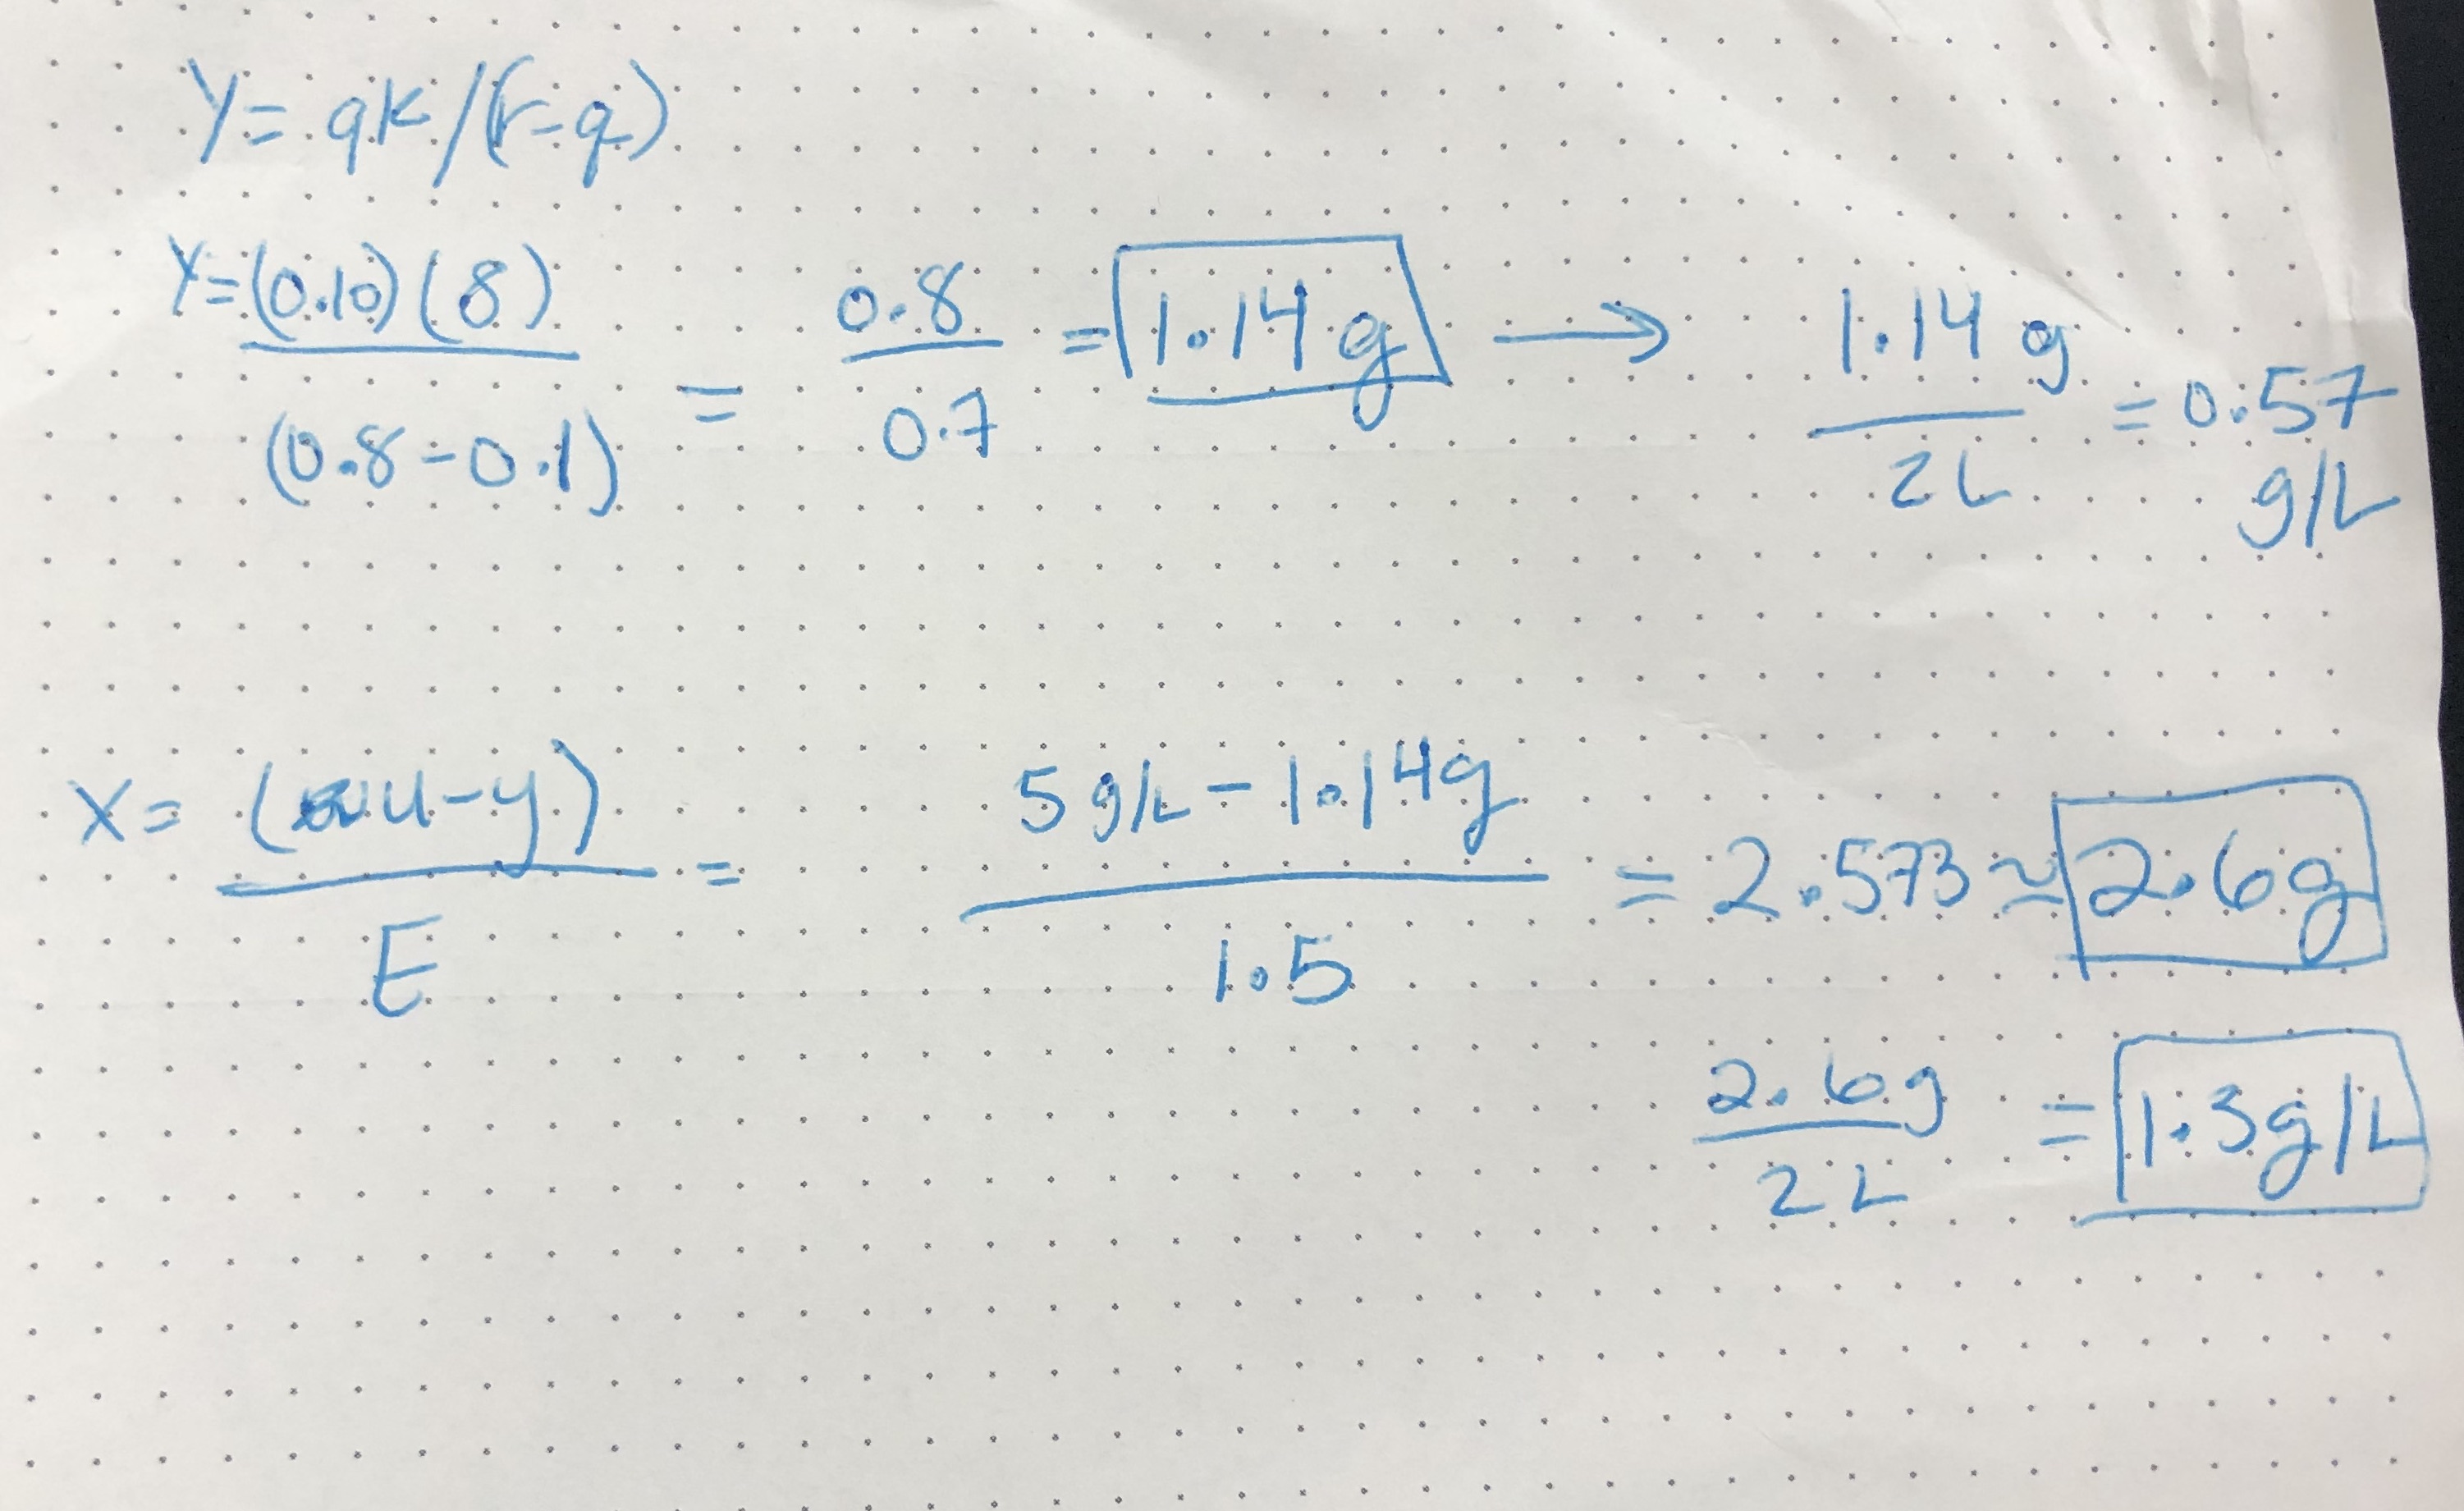 Y = qK/(r-q)
Y = (0.10)(8) / (0.8-0.1) = 0.8 / 0.7 = 1.14 g → 1.14 g / 2L = 0.57 g/L
X = (u-y) / E = 5 g/L - 1.14g / 1.5 = 2.573 ≈ 2.6g
2.6g / 2L = 1.3g/L